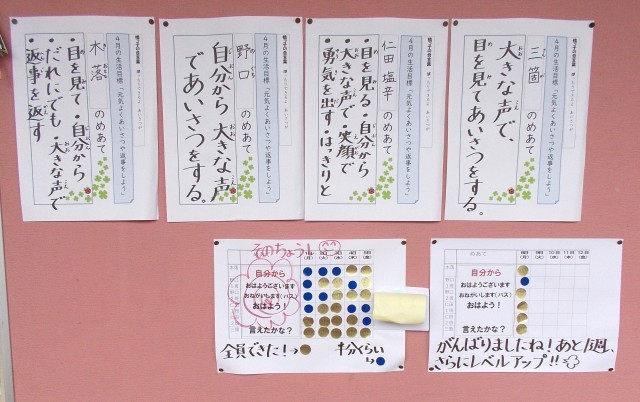 4月の生活目標「元気よくあいさつや返事をしよう」
三箇
のめあて
大きな声で、
目を見てあいさつをする。
4月の生活目標「元気よくあいさつや返事をしよう」
仁田塩幸
のめあて
・目を見る・自分から
・大きな声で・笑顔で
勇気を出す・はっきりと
4月の生活目標「元気よくあいさつや返事をしよう」
野口
のめあて
自分から大きな声
であいさつをする。
4月の生活目標「元気よくあいさつや返事をしよう」
木落
のめあて
・目を見て・自分から
・だれにでも・大きな声で
返事を返す
そのちょうし
自分から
おはようございます
おねがいします(バス)
おはよう!
言えたかな?
全員できた!→
半分くらい
めあて
8日(月)
9日(火)
10日(水)
11日(木)
12日(金)
自分から
おはようございます
おねがいします(バス)
おはよう!
言えたかな?
がんばりましたね!あと1週、
さらにレベルアップ!!